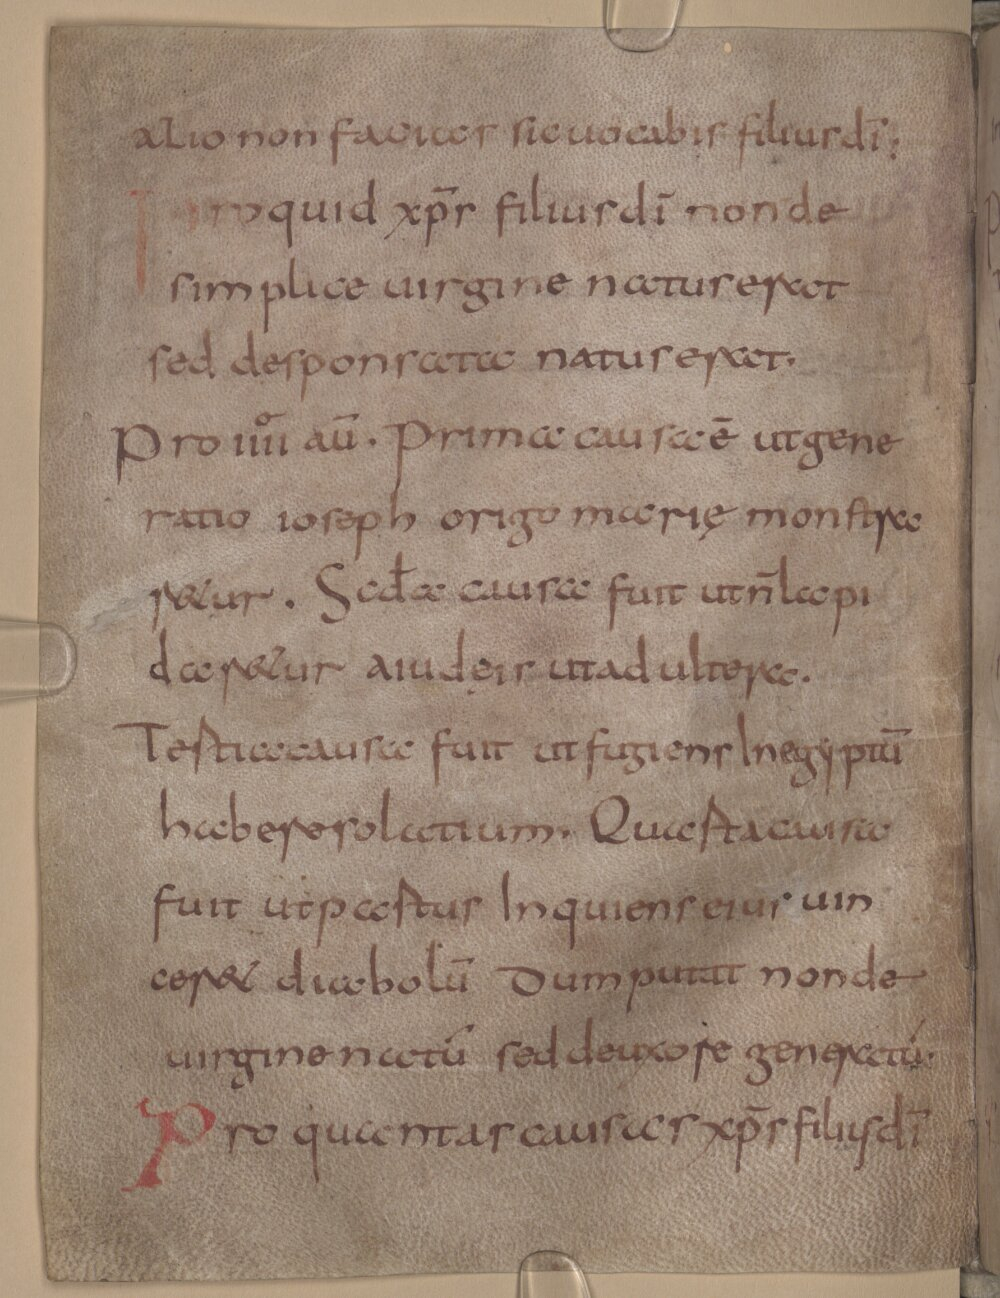 alio non facices sic uocabis filius dī;
Pro quid xp̄s filius dī non de
simplice uirgine natus erat
sed desponsata natus erat.
Pro iiii au̅. Prima causa ē ut gene
ratio ioseph origo marię monstra
retur. Scd̄a causa fuit ut n̄ lapi
daretur a iudęis ut adultera.
Testia causa fuit ut fugiens In egyptū
haberet solatium. Quasta causa
fuit ut pastus In quiens eius uin
ceret diabolū dum putat non de
uirgine natū sed de uxore generatū.
Pro quantas causas xp̄s filius dī